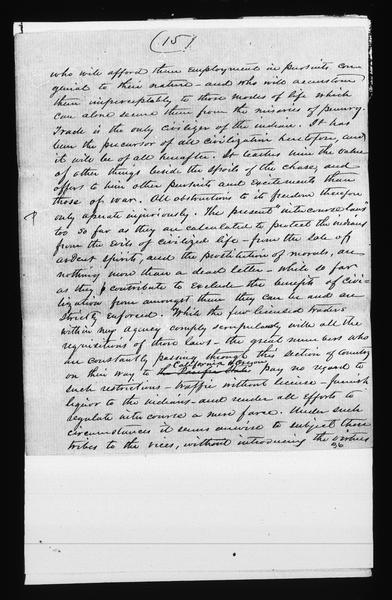 (15)
who will afford them employment in pursuits con-
genial to their nature - and who will accustom
them imperceptably to those modes of life which
can alone secure them from the miseries of penury.
Trade is the only civilizer of the indian. It has
been the precursor of all civilization heretofore, and
it will be of all hereafter. It teaches him the value
of other things beside the spoils of the chase, and
offers to him other pursuits and excitements than
those of war. All obstructions to its freedom therefore
only operate injuriously. The present "intercourse laws"
too so far as they are calculated to protect the indians
from the evils of civilized life - from the sale of
ardent spirits, and the prostitution of morals, are
nothing more than a dead letter - while so far
as they contribute to exclude the benefits of civi-
lization from amongst them they can be and are
strictly enforced. While the few licensed traders
within my agency comply scrupulously with all the
requisitions of those laws - the great numbers who
are constantly passing through this section of country
on their way to California & Oregon pay no regard to
such restrictions - traffic without license - furnish
liquor to the indians - and render all efforts to
regulate intercourse a mere farce. Under such
circumstances it seems unwise to subject these
tribes to the vices, without introducing the virtues
36